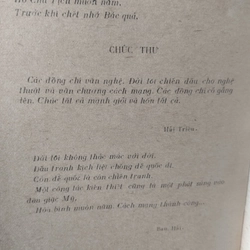 Hồ Chủ Tịch muôn năm,
Trước khi chết nhớ Bác quá,
CHÚC THƯ
Các đồng chí văn nghệ. Đời tôi chiến đấu cho nghệ
thuật và văn chương cách mạng. Các đồng chí cố gắng
lên. Chúc tất cả mạnh giỏi và hôn tất cả.
Hải Triều.
Đời tôi không thắc mắc với đời,
Đấu tranh kịch liệt chống đế quốc đi.
Còn đế quốc là còn chiến tranh.
Một công tác kiến thiết cũng là một phát súng vào
đầu giặc Mỹ,
Hòa bình muôn năm. Cách mạng thành công...